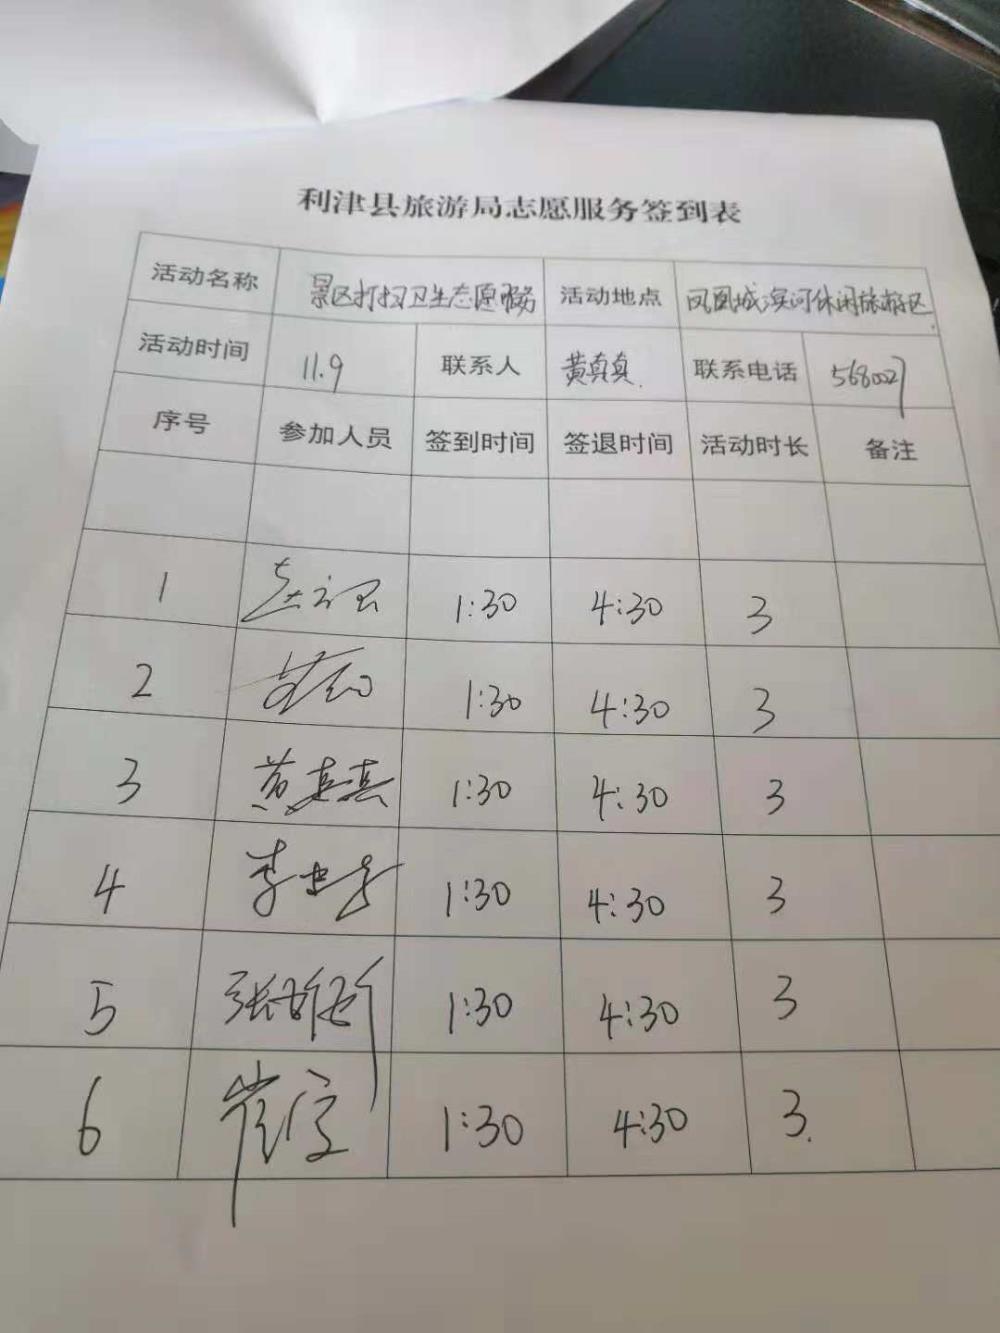 利津县旅游局志愿服务签到表
活动名称 景区打扫卫生志愿服务 活动地点 凤凰城滨河休闲旅游区
活动时间 11.9 联系人 黄真真 联系电话 5680027
序号 参加人员 签到时间 签退时间 活动时长 备注
1 1:30 4:30 3
2 1:30 4:30 3
3 黄真真 1:30 4:30 3
4 李 1:30 4:30 3
5 张 1:30 4:30 3
6 崔 1:30 4:30 3